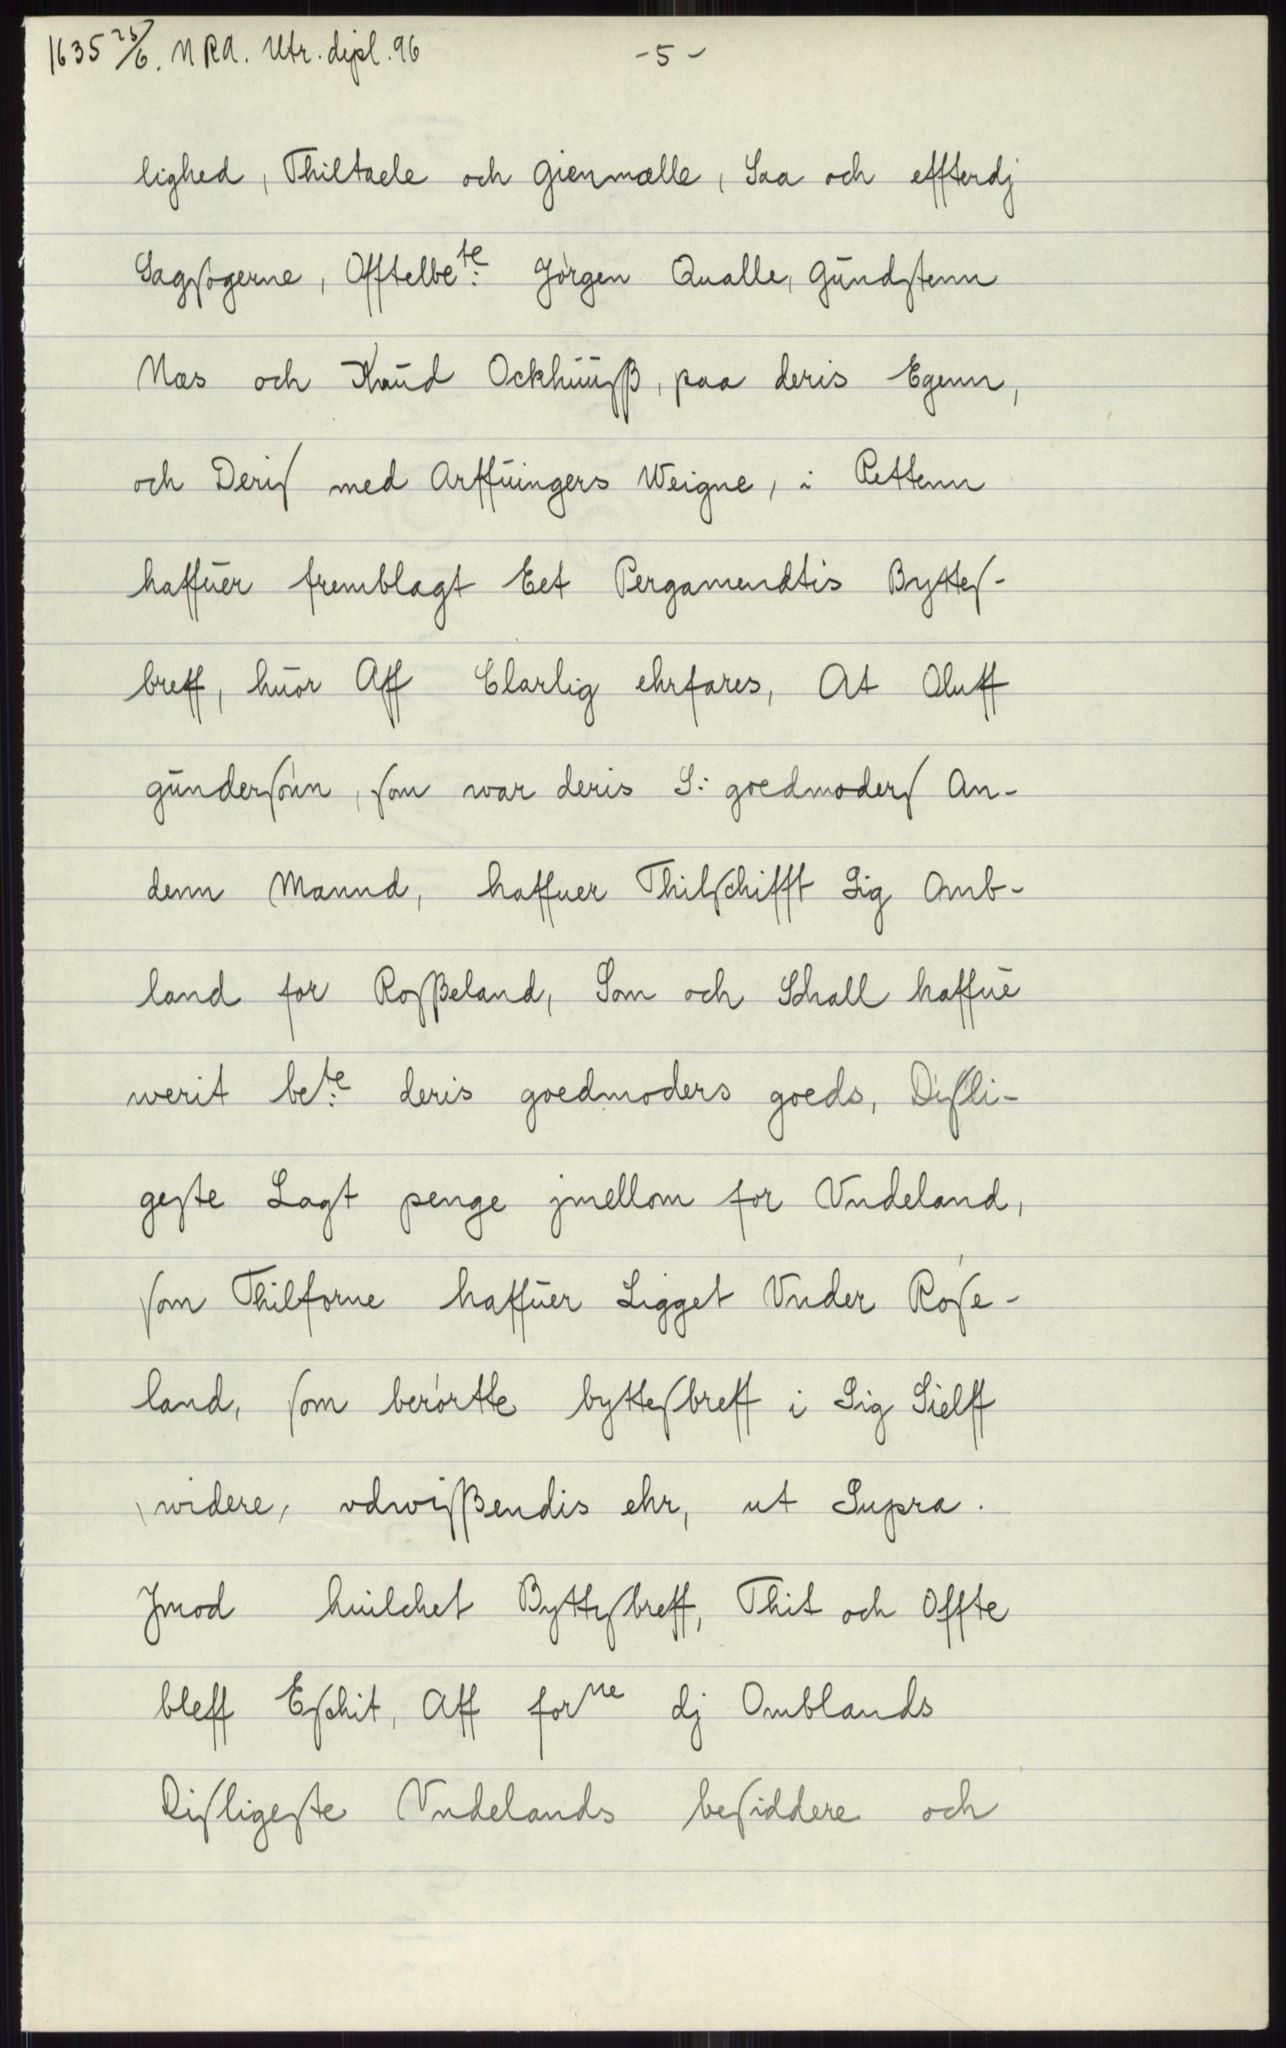 1635 25/6. N R A. Utr. dipl. 96
- 5 -
lighed, Thiltaele och Gienmælle, Saa och effterdj
Sagſøgerne, Offtelbe^te: Jørgen Qualle, Gŭndſtenn
Næs och Knŭd Ockhŭŭſß, paa deris Egenn,
och Deriſ med Arffŭingers Weigne, i Rettenn
haffŭer fremblagt Eet Pergamendtis Bytteſ-
breff, hŭor Aff Clarlig ehrfares, At Oluff
gŭnderſønn, ſom war deris S: goedmoderſ An-
denn Mannd, haffuer Thilſchifft Sig Omb-
land for Roſßeland, Som och Schall haffŭe
werit be^te: deris goedmoders goeds, Diſli-
geſte Lagt penge jmellom for Vndeland,
ſom Thilforne haffŭer Ligget Vnder Roſe-
land, ſom berørtte bytteſbreff i Sig Sielff
widere, vdwiſßendis ehr, ut Supra.
Jmod huilchet Bytteſbreff, Thit och Offte
bleff Eſchit, Aff for^ne dj Omblands
Diſligeſte Vndelands beſiddere och